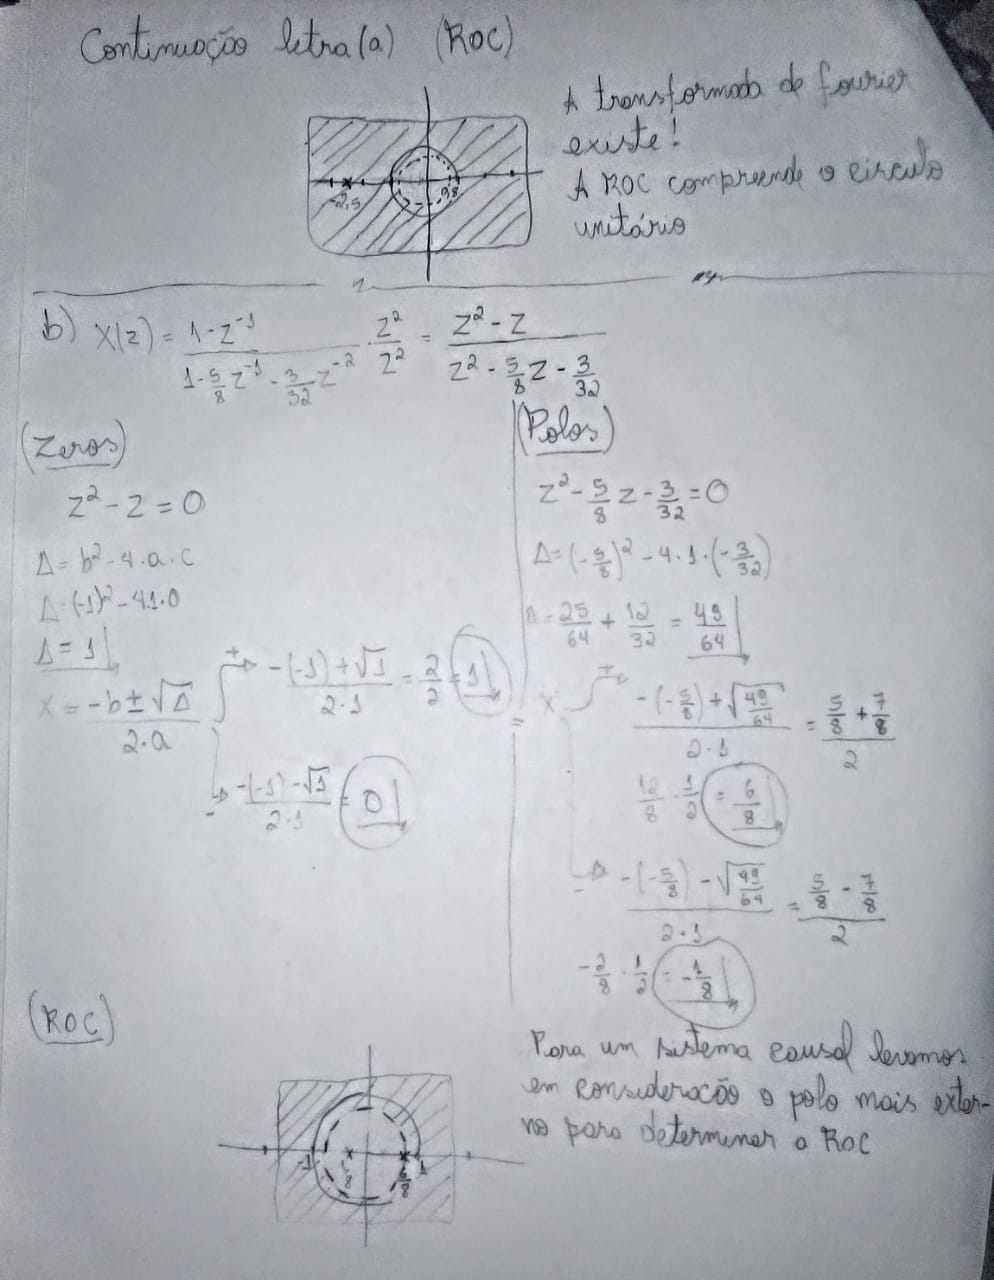 Continuação letra (a) (ROC)
A transformada de fourier
existe!
A ROC compreende o circulo
unitário
-2,5
0,8
b) X(z) = 1-z⁻¹ / 1-5/8 z⁻¹ - 3/32 z⁻² · z²/z² = z² - z / z² - 5/8 z - 3/32
(Zeros)
z² - z = 0
Δ = b² - 4·a·c
Δ = (-1)² - 4·1·0
Δ = 1
x = -b ± √Δ / 2·a
+ → -(-1) + √1 / 2·1 = 2/2 = 1
- → -(-1) - √1 / 2·1 = 0
(Polos)
z² - 5/8 z - 3/32 = 0
Δ = (-5/8)² - 4·1·(-3/32)
Δ = 25/64 + 12/32 = 49/64
x = + → -(-5/8) + √49/64 / 2·1 = 5/8 + 7/8 / 2
12/8 · 1/2 = 6/8
- → -(-5/8) - √49/64 / 2·1 = 5/8 - 7/8 / 2
-2/8 · 1/2 = -1/8
(ROC)
-1
-1/8
6/8
1
Para um sistema causal levamos
em consideração o polo mais exter-
no para determinar a ROC